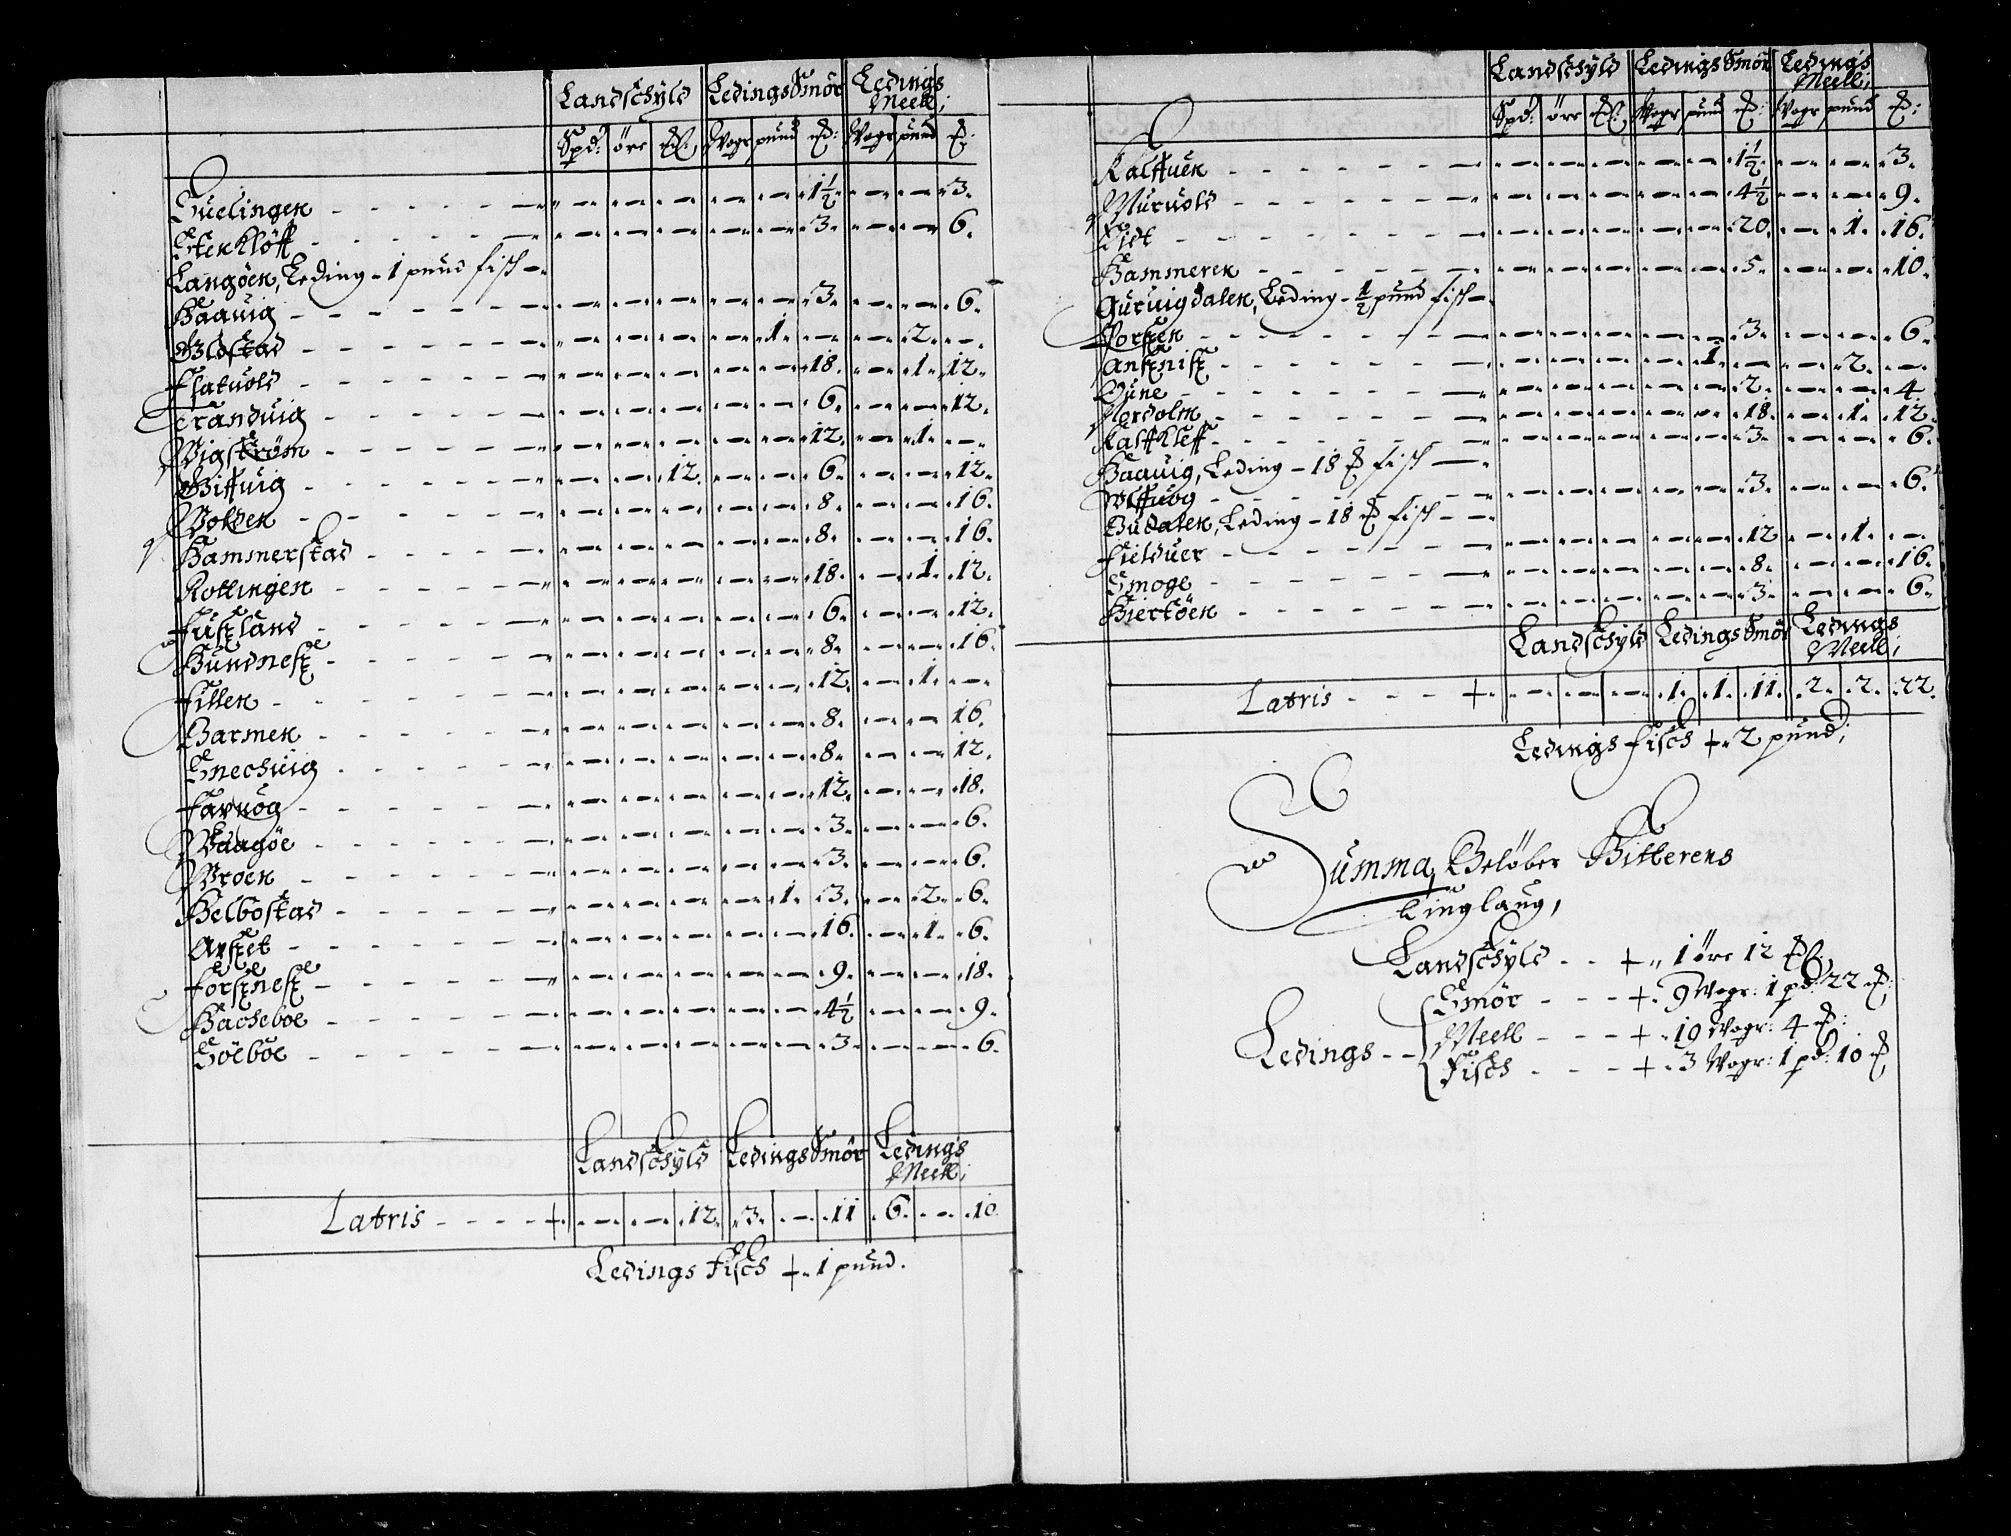 Landschyld LedingsSmör Ledings Meell;
Spd: öre Vogr pund Vogr pund
Suelingen 1½ 3
Stenkløff 3 6
Langöen, Leding - 1 pund fisch
Haauig 3 6
Glostad 1 2
Flatuold 18 1 12
Tranduig 6 12
Vigström 12 1
Bittuig 12 6 12
Volden 8 16
Hammerstad 8 16
Kottingen 18 1 12
Fuxland 6 12
Hundnesz 8 16
Fillen 12 1
Barmen 8 16
Snechuig 8 12
Fauuog 12 18
Vaagöe 3 6
Vroen 3 6
Helbostad 1 3 2 6
Auszet 16 1 6
Forsznesz 9 18
Hacheboe 4½ 9
Söeböe 3 6
Landschyld LedingsSmör Ledings Meell;
Latris 12 3 11 6 10
Ledings Fisch 1 pund.
Landschyld LedingsSmör Ledings Meell;
Spd: öre Vogr pund Vogr pund
Kalffuen 1½ 3
Muruold 4½ 9
Eidt 20 1 16
Hammeren 5 10
Guruigdalen, Leding - ½ pund fisch
Porszen 3 6
Ansznisz 1 2
Vüne 2 4
Nordolm 18 1 12
Kalffkleff 3 6
Haauig, Leding - 18 fisch
Ulffuog 3 6
Budalen, Leding - 18 fisch
Fielduer 12 1
Smoge 8 16
Hiertöen 3 6
Landschyld LedingsSmör Ledings Meell;
Latris 1 1 11 2 2 22
Ledings fisch 2 pund;
Summa, Belöber Hitterens
tinglaug,
Landschyld - - 1 öre 12
Smör - - - 9 Vogr: 1 pd: 22
Ledings - - Meell - - - 19 Vogr: 4
Fisch - - - 3 Vogr: 1 pd: 10